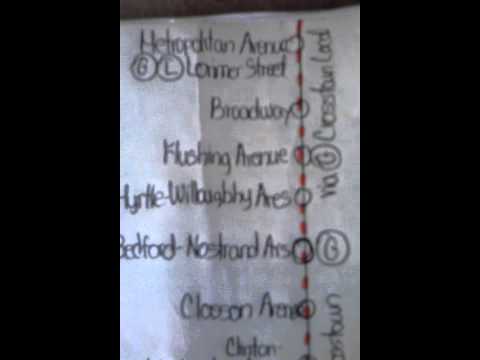 Metropolitan Avenue
G L Lorimer Street
Broadway
Flushing Avenue
Myrtle-Willoughby Aves
Bedford-Nostrand Avs
G
Classon Avenue
Clinton-
via G Crosstown Local
Crosstown